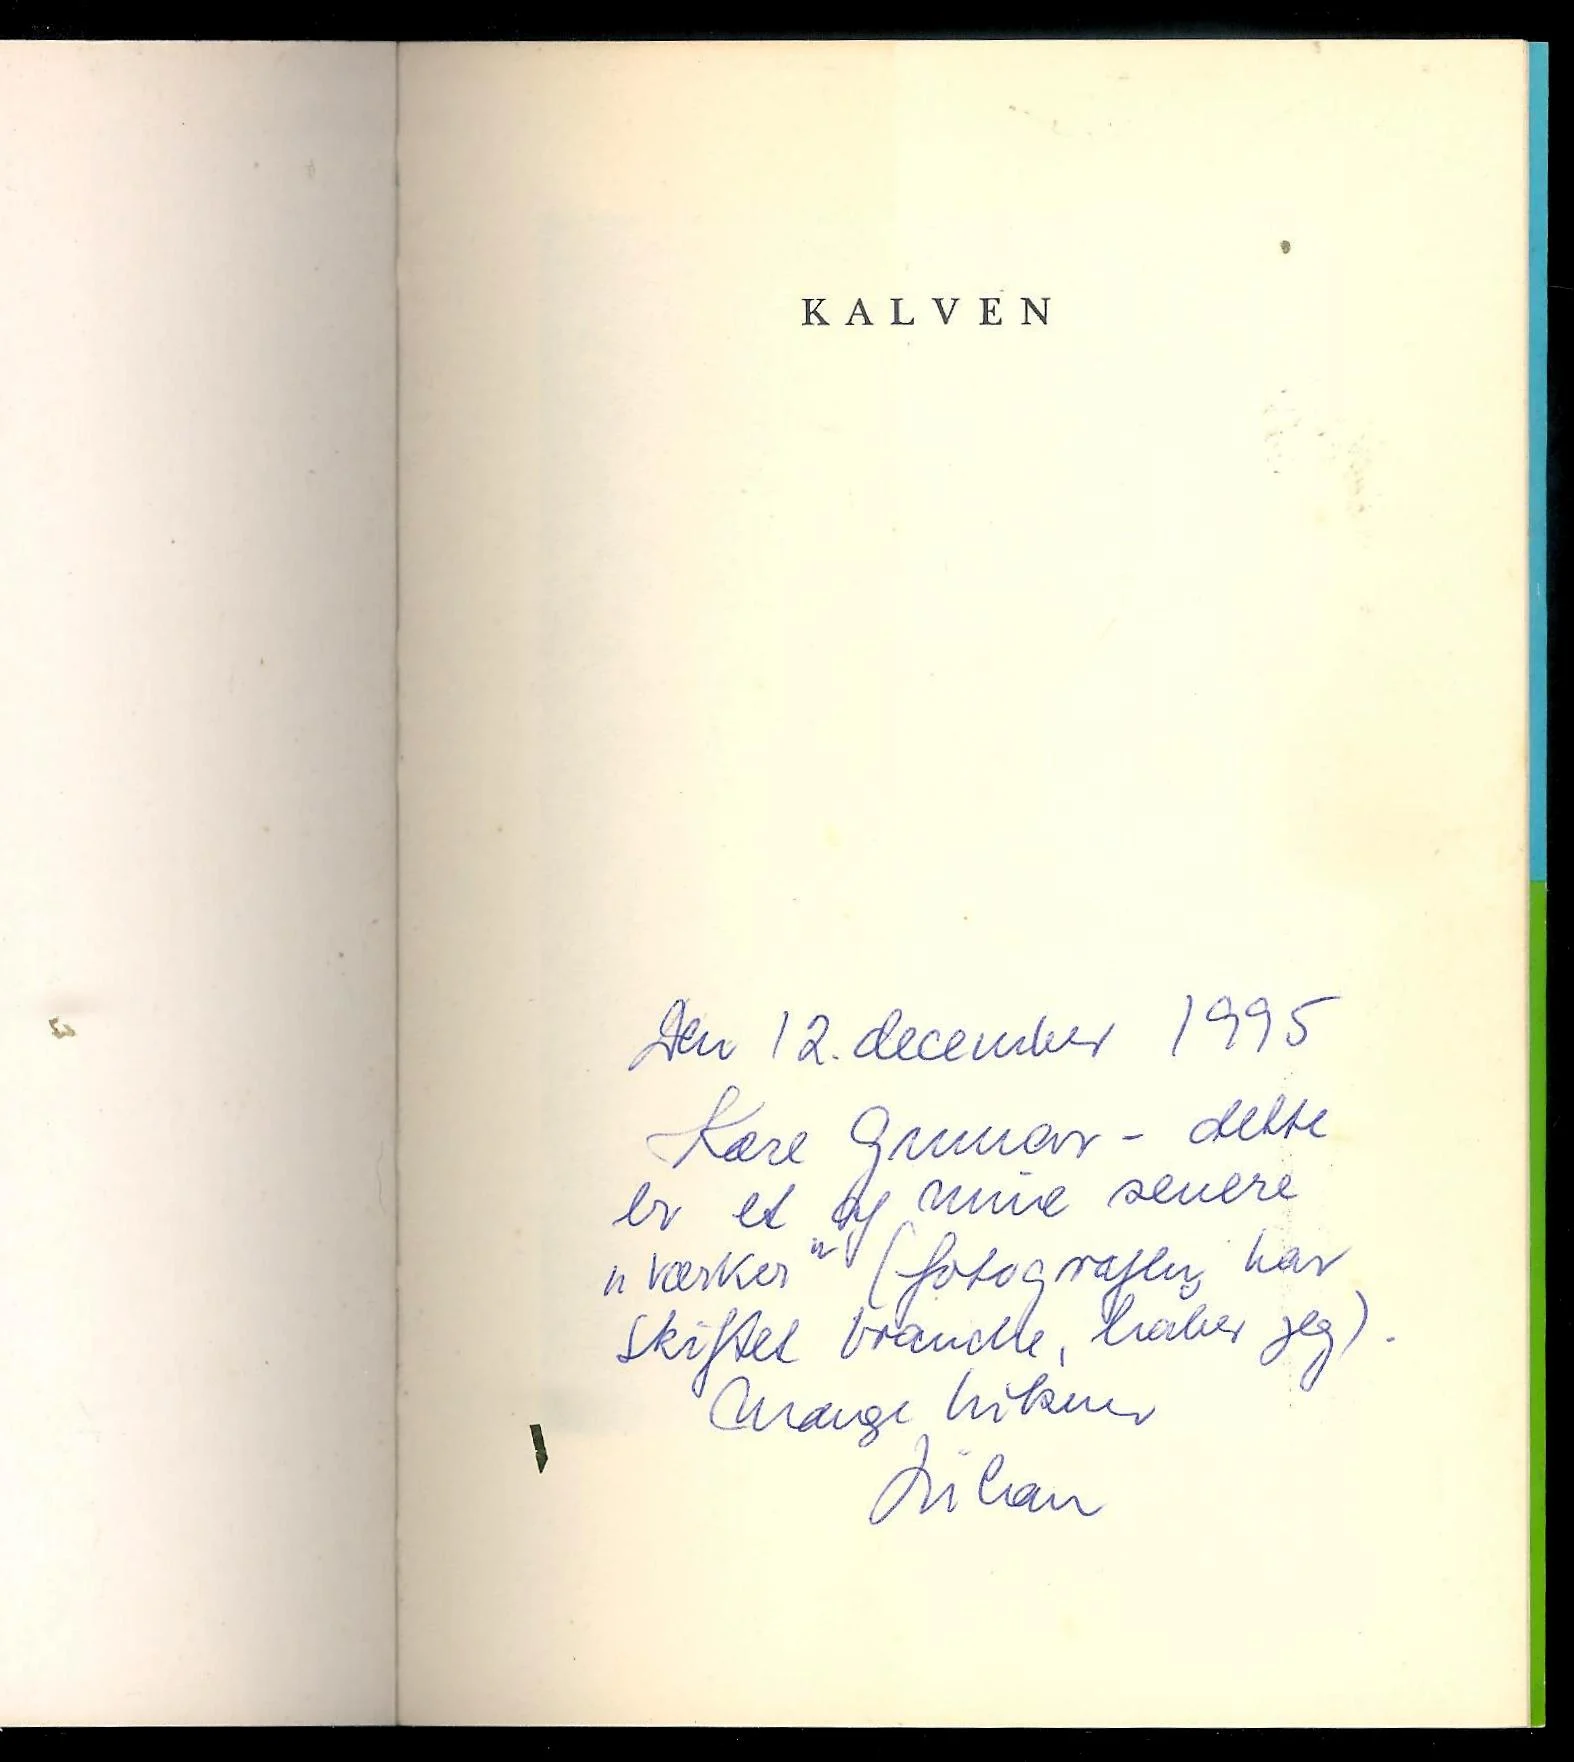 KALVEN
Den 12. december 1995
Kære Gunnar - dette
er et af mine senere
"værker" (fotografen har
skiftet branche, håber jeg).
Mange hilsner